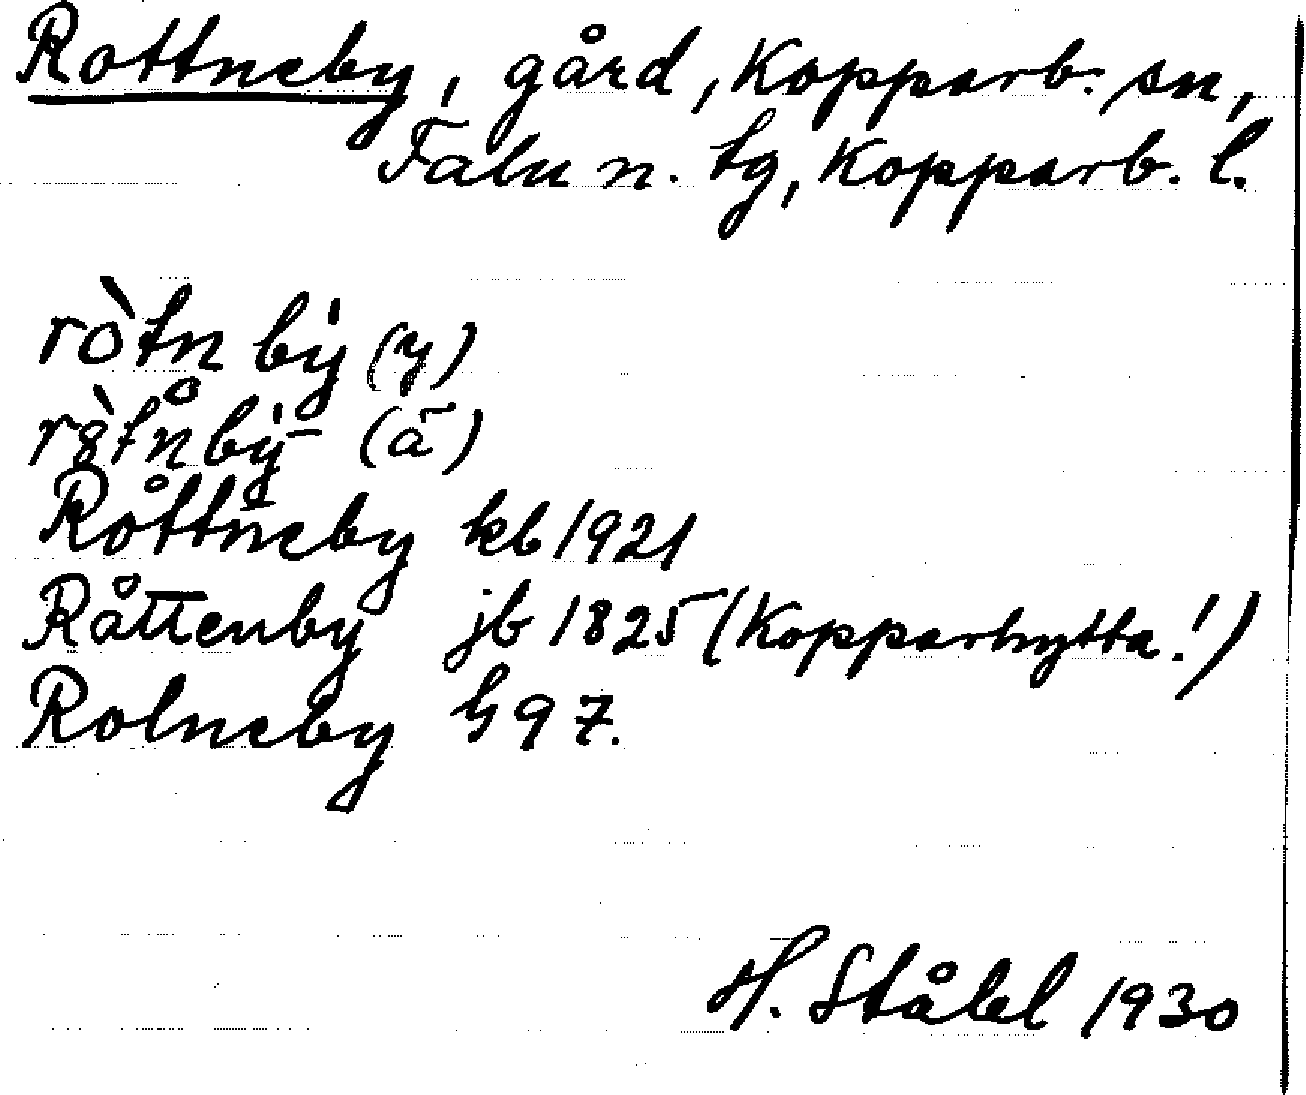 Rottneby, gård, Kopparb. sn,
Falu n. tg, Kopparb. l.
ròtn bý (y)
(ä)
Råttneby kb 1921
Råttenby jb 1825 (Kopparhytta!)
Rolneby h97.
H. Ståhl 1930